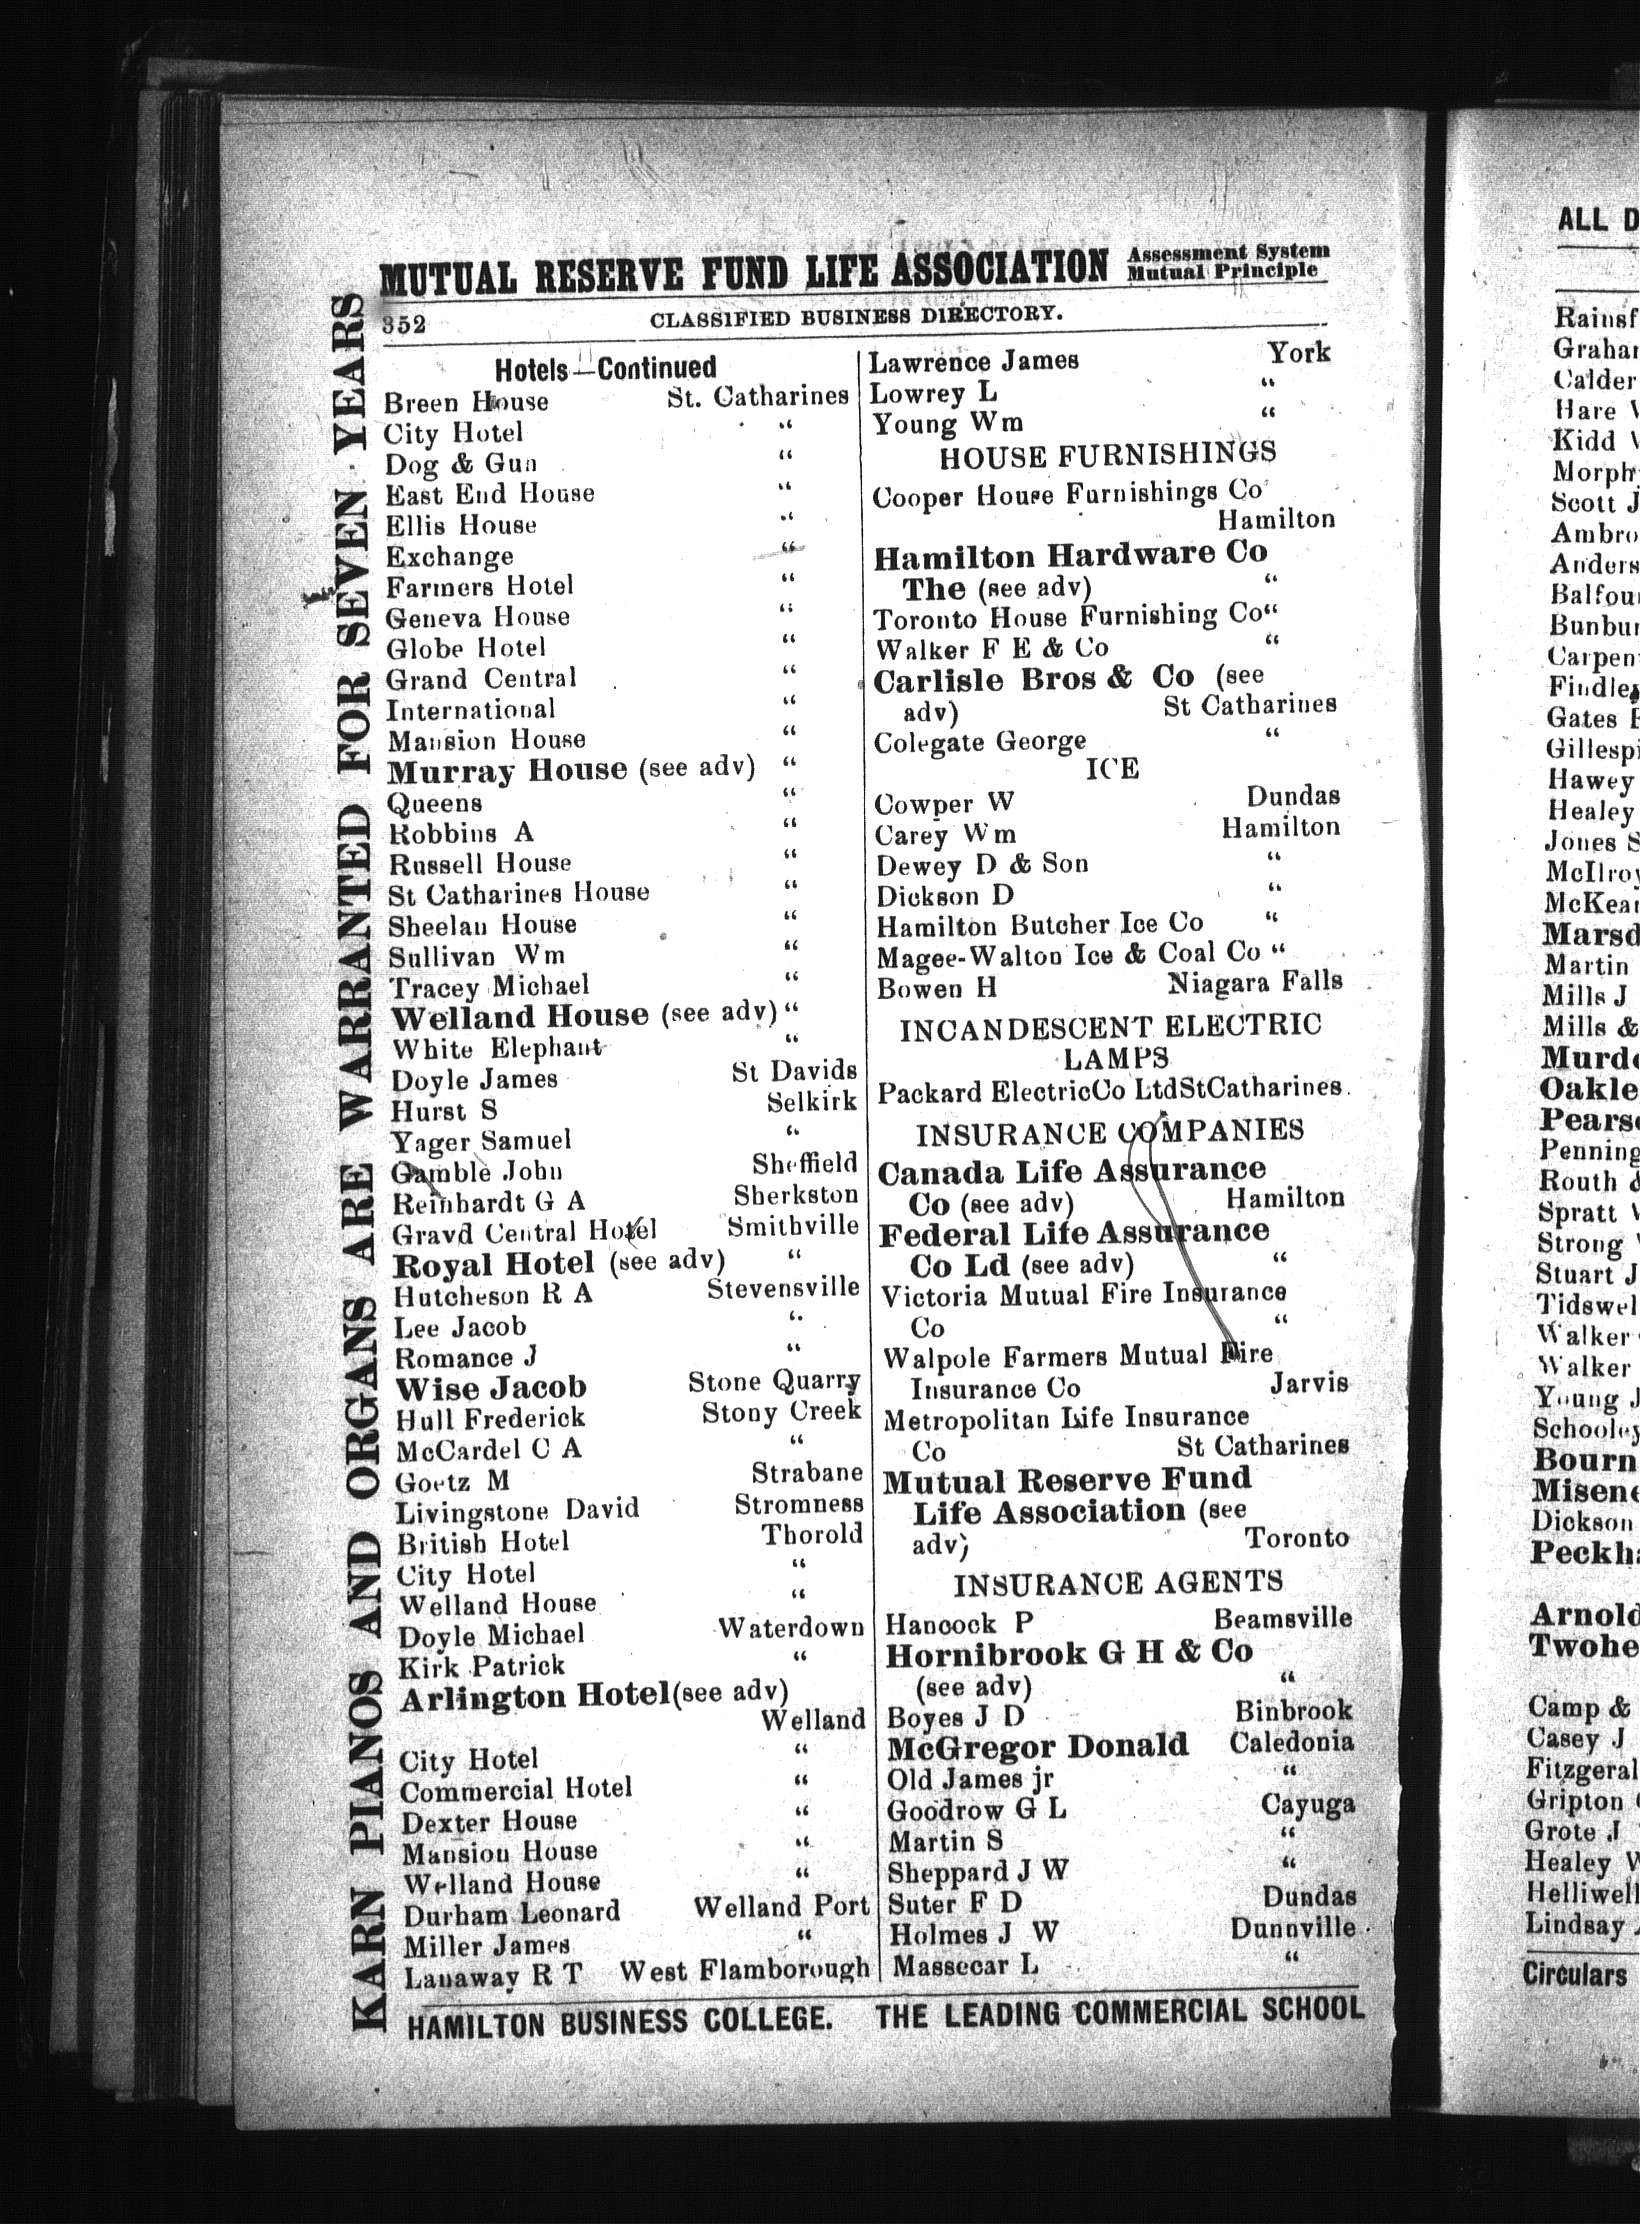 MUTUAL RESERVE FUND LIFE ASSOCIATION Assessment System Mutual Principle
352 CLASSIFIED BUSINESS DIRECTORY.
KARN PIANOS AND ORGANS ARE WARRANTED FOR SEVEN YEARS
Hotels—Continued
Breen House St. Catharines
City Hotel "
Dog & Gun "
East End House "
Ellis House "
Exchange "
Farmers Hotel "
Geneva House "
Globe Hotel "
Grand Central "
International "
Mansion House "
Murray House (see adv) "
Queens "
Robbins A "
Russell House "
St Catharines House "
Sheelan House "
Sullivan Wm "
Tracey Michael "
Welland House (see adv) "
White Elephant "
Doyle James St Davids
Hurst S Selkirk
Yager Samuel "
Gamble John Sheffield
Reinhardt G A Sherkston
Gravd Central Hotel Smithville
Royal Hotel (see adv) "
Hutcheson R A Stevensville
Lee Jacob "
Romance J "
Wise Jacob Stone Quarry
Hull Frederick Stony Creek
McCardel C A "
Goetz M Strabane
Livingstone David Stromness
British Hotel Thorold
City Hotel "
Welland House "
Doyle Michael Waterdown
Kirk Patrick "
Arlington Hotel (see adv)
Welland
City Hotel "
Commercial Hotel "
Dexter House "
Mansion House "
Welland House "
Durham Leonard Welland Port
Miller James "
Lanaway R T West Flamborough
Lawrence James York
Lowrey L "
Young Wm "
HOUSE FURNISHINGS
Cooper House Furnishings Co
Hamilton
Hamilton Hardware Co
The (see adv) "
Toronto House Furnishing Co "
Walker F E & Co "
Carlisle Bros & Co (see
adv) St Catharines
Colegate George "
ICE
Cowper W Dundas
Carey Wm Hamilton
Dewey D & Son "
Dickson D "
Hamilton Butcher Ice Co "
Magee-Walton Ice & Coal Co "
Bowen H Niagara Falls
INCANDESCENT ELECTRIC
LAMPS
Packard Electric Co Ltd St Catharines.
INSURANCE COMPANIES
Canada Life Assurance
Co (see adv) Hamilton
Federal Life Assurance
Co Ld (see adv) "
Victoria Mutual Fire Insurance
Co "
Walpole Farmers Mutual Fire
Insurance Co Jarvis
Metropolitan Life Insurance
Co St Catharines
Mutual Reserve Fund
Life Association (see
adv) Toronto
INSURANCE AGENTS
Hancock P Beamsville
Hornibrook G H & Co
(see adv) "
Boyes J D Binbrook
McGregor Donald Caledonia
Old James jr "
Goodrow G L Cayuga
Martin S "
Sheppard J W "
Suter F D Dundas
Holmes J W Dunnville
Massecar L "
HAMILTON BUSINESS COLLEGE. THE LEADING COMMERCIAL SCHOOL
ALL
Calder
Hare
Kidd
Scott J
Healey
Jones S
Martin
Mills J
Mills &
Routh &
Spratt
Strong
Stuart J
Walker
Walker
Young J
Schooley
Dickson
Arnold
Camp &
Casey J
Grote J
Healey W
Lindsay
Circulars